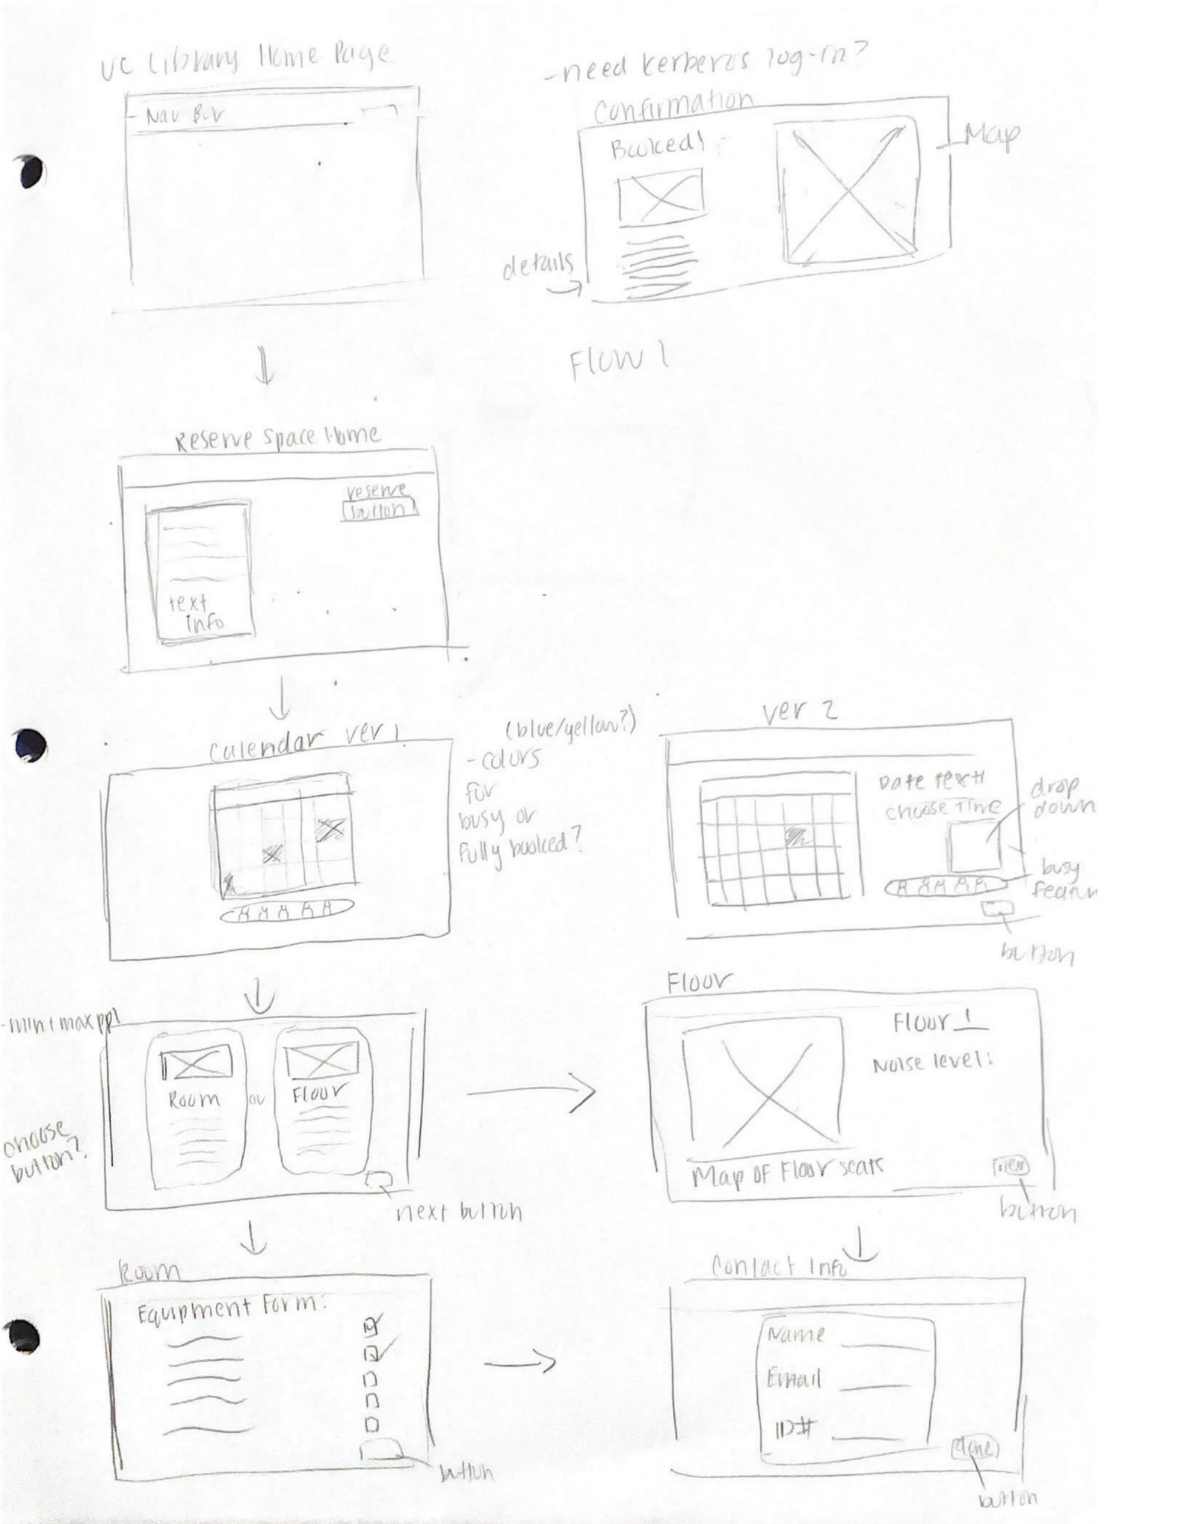 UC Library Home Page
Nav Bar
-need kerberos log-in?
Confirmation
Booked!
Map
details
Flow 1
Reserve Space Home
reserve
button
text
info
Calendar ver 1
(blue/yellow?)
-colors
for
busy or
fully booked?
ver 2
Date text
choose time
drop
down
busy
featur
button
-min+max ppl
Room
or
Floor
choose
button?
next button
Floor
Floor 1
Noise level:
Map of Floor seats
button
Room
Equipment Form:
button
Contact Info
Name
Email
ID#
done
button